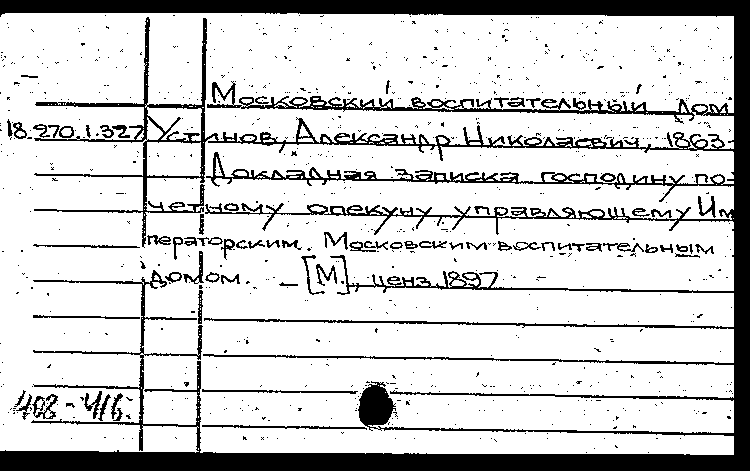 Московский воспитательный дом
18.270.1.327 Устинов, Александр Николаевич, 1863-
Докладная записка господину по-
четному опекуну, управляющему Им
ператорским Московским воспитательным
домом. — [М.], ценз. 1897
408-416.